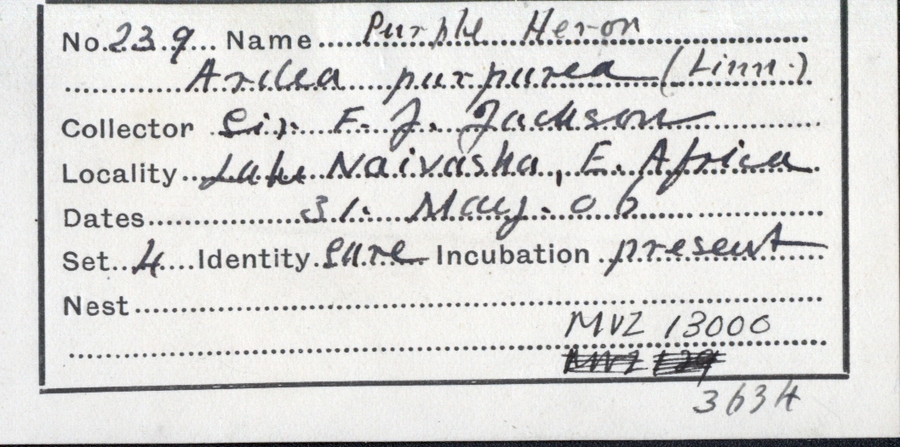 No. 23.9... Name.....Purple Heron
Ardea purpurea (Linn.)
Collector Sir. F. J. Jackson
Locality..Lake Naivasha, E. Africa
Dates...............31. May. 06
Set..4....Identity.sure Incubation .present
Nest
MVZ 13000
3634